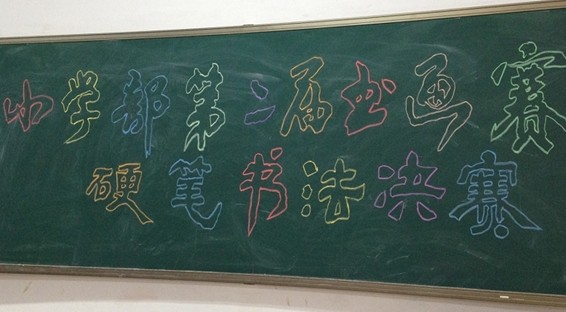 中学部第二届书画赛
硬笔书法决赛